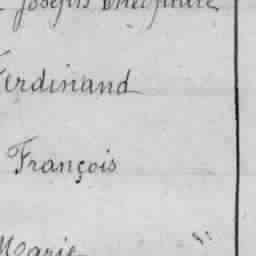 Joseph
Ferdinand
François
Marie